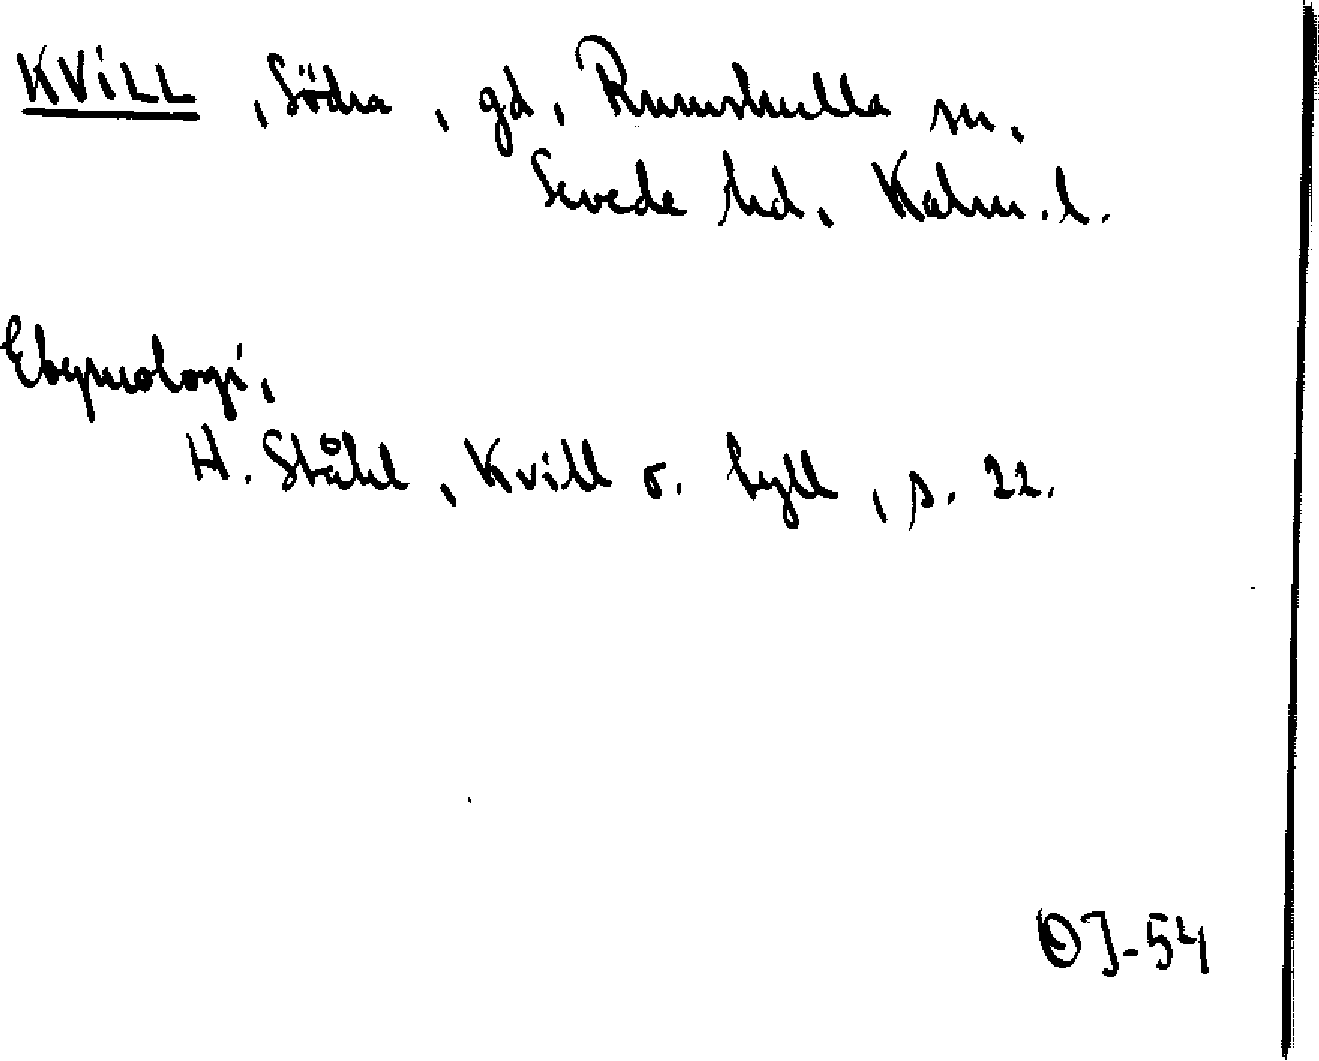 KVILL, Södra, gd, Rumskulla sn.
Sevede hd, Kalm. l.
Etymologi,
H. Ståhl, Kvill o. tyll, s. 22.
OJ-54